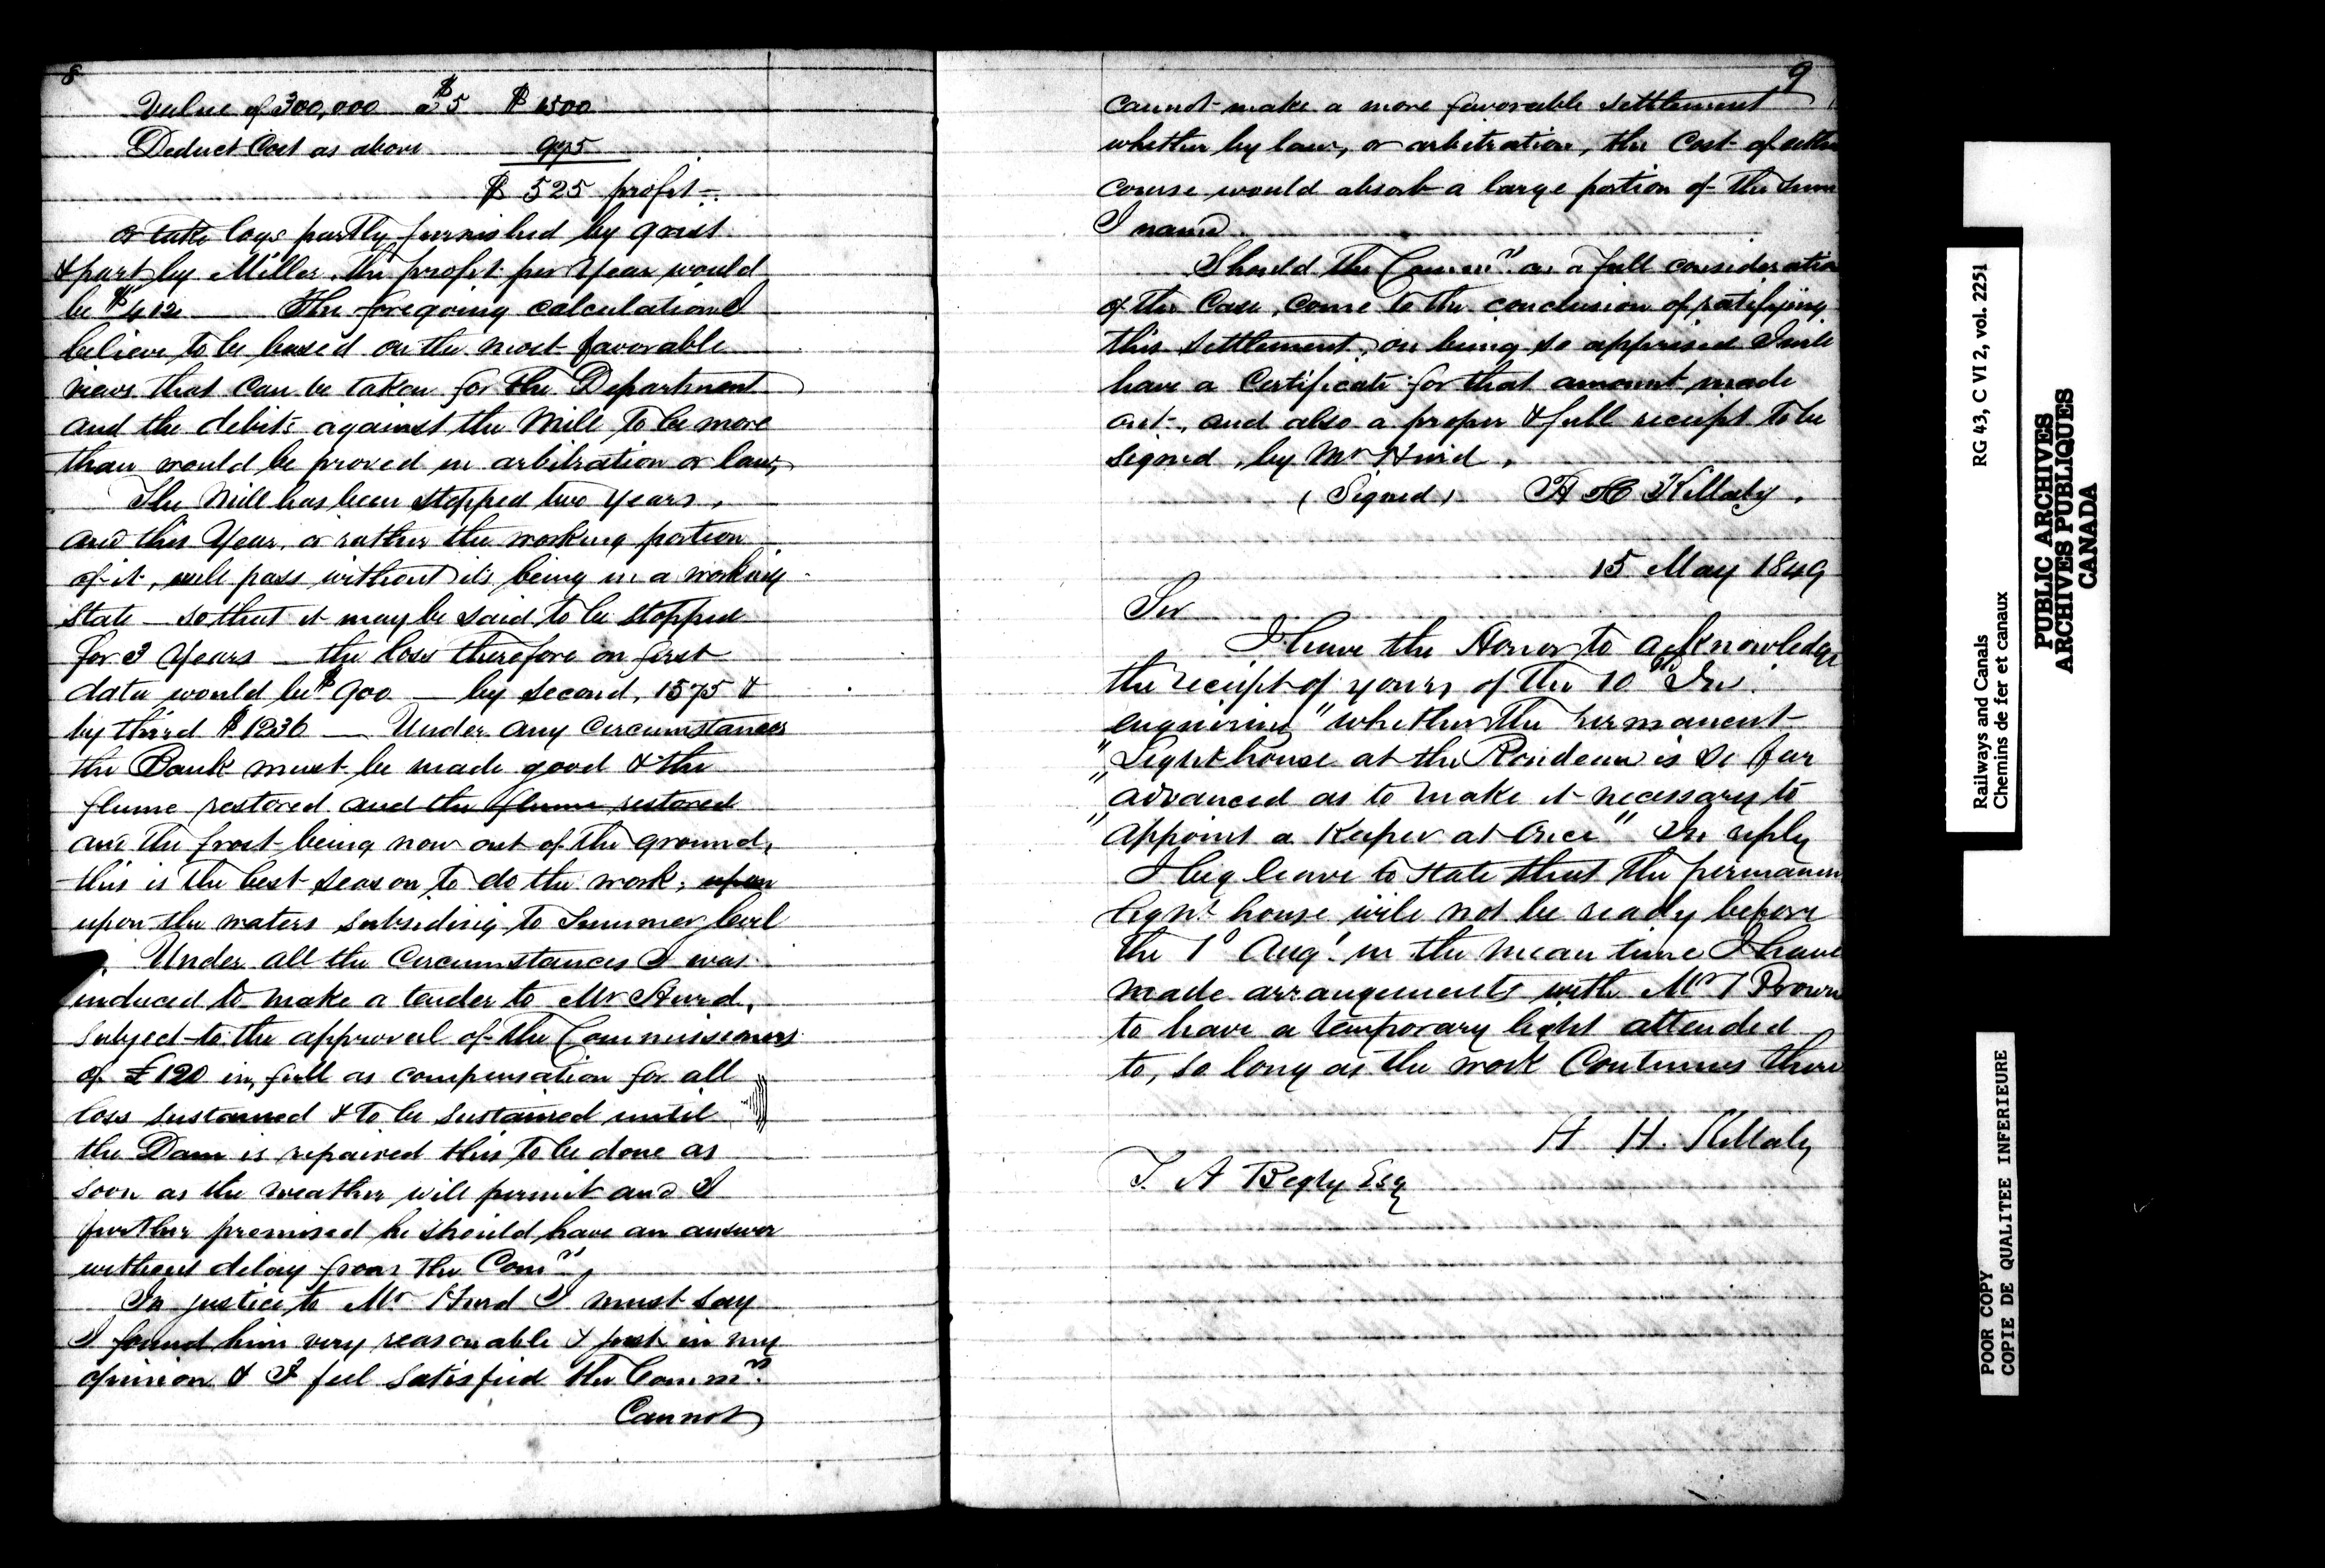 8
Value of 300,000 a $5 $1500
Deduct Cost as above 975
$525 profit
or take logs partly furnished by
& part by Miller, the profit per Year would
be $412 — The foregoing calculations I
believe to be based on the most favorable
views that can be taken for the Department
and the debits against the Mill to be more
than would be proved in arbitration or law,
The Mill has been stopped two years,
and this Year, or rather the working portion
of it, will pass without its being in a working
State — so that it may be said to be stopped
for 3 Years — the loss therefore on first
data would be $900 — by second, 1575 &
by third $1236 — Under any Circumstances
the Bank must be made good & the
flume restored and the flume restored
and the frost being now out of the ground,
this is the best season to do the work, upon
upon the waters subsiding to Summer level
Under all the Circumstances I was
induced to make a tender to Mr Hurd,
subject to the approval of the Commissioners
of £120 in full as compensation for all
loss sustained & to be sustained until
the Dam is repaired this to be done as
soon as the weather will permit and I
further promised he should have an answer
without delay from the Comrs
In justice to Mr Hurd I must say
I found him very reasonable & just in my
opinion & I feel satisfied the Commrs
Cannot
9
cannot make a more favorable settlement
whether by law, or arbitration, the Cost of either
course would absorb a large portion of the sum
I named.
Should the Commrs on a full consideratio
of the Case, come to the conclusion of ratifying
this settlement, on being so apprised I will
have a Certificate for that amount made
out, and also a proper & full receipt to be
signed, by Mr Hurd,
(Signed) H H Killaly,
15 May 1849
Sir
I have the Honor to acknowledge
the receipt of yours of the 10th
enquiring "whether the permanent
"Light house at the Rondeau is so far
"advanced as to make it necessary to
"appoint a Keeper at Once" In reply
I beg leave to state that the permanen
light house will not be ready before
the 1st Augt in the mean time I have
made arrangements with Mr T Brown
to have a temporary light attended
to, so long as the work Continues there
H H. Killaly
T. A Begly Esq
RG 43, C VI 2, vol. 2251
Railways and Canals
Chemins de fer et canaux
PUBLIC ARCHIVES
ARCHIVES PUBLIQUES
CANADA
POOR COPY
COPIE DE QUALITEE INFERIEURE